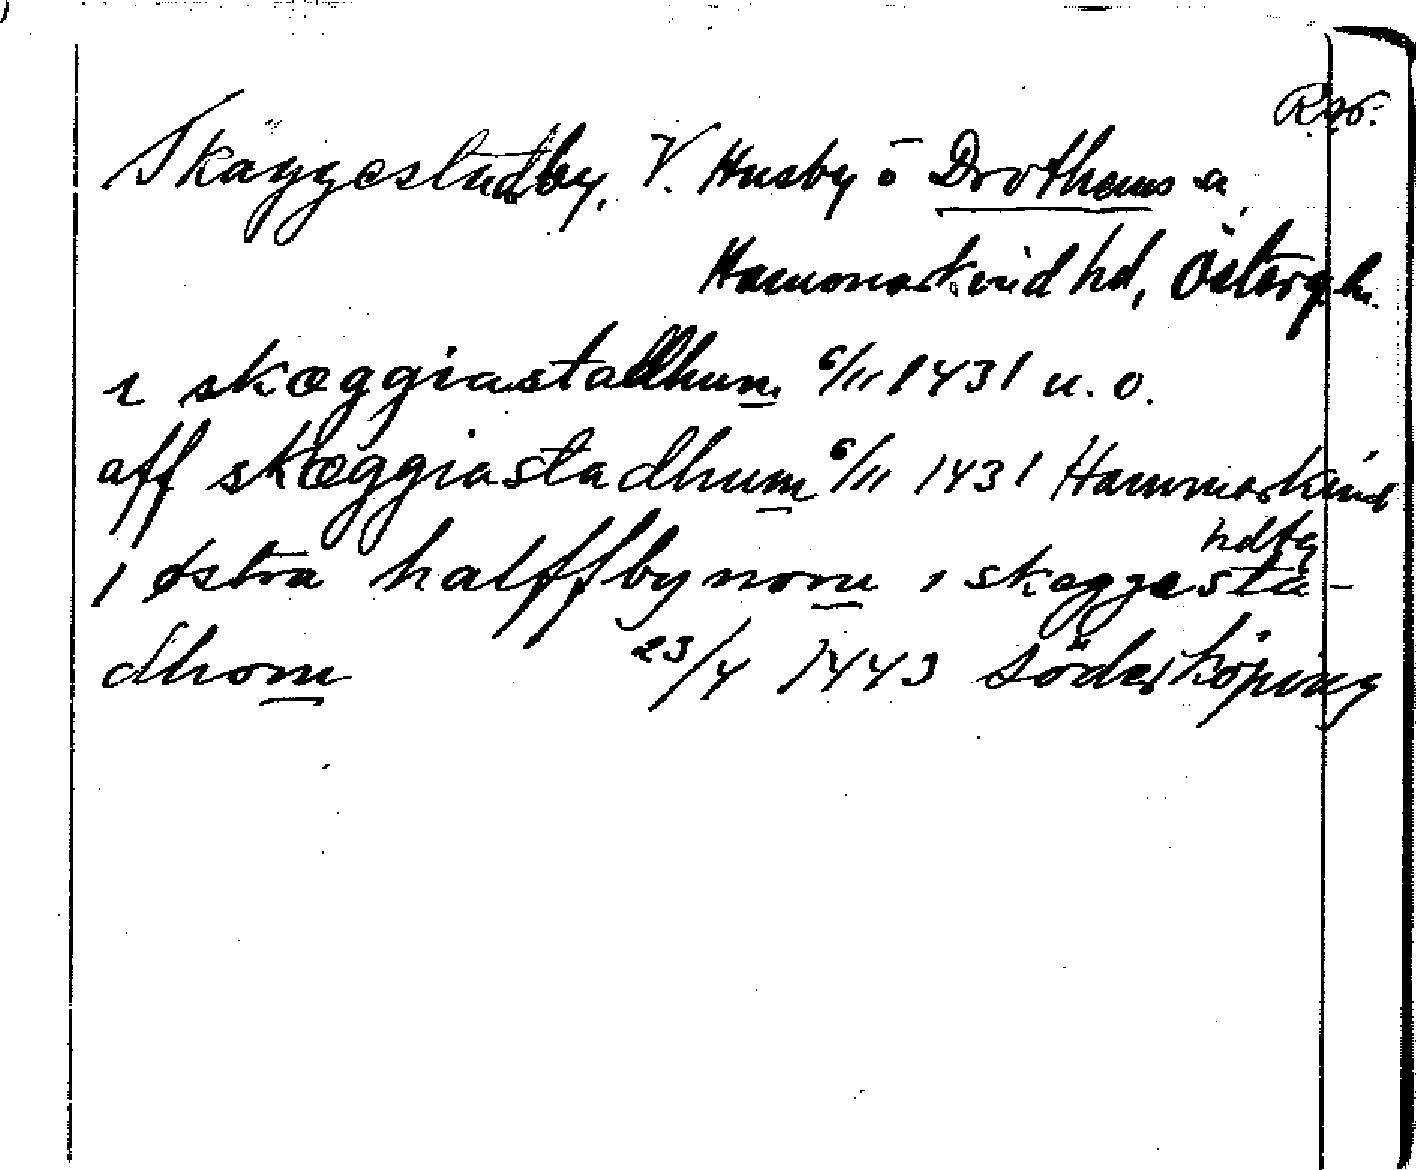 Rap.
Skäggestadby, V. Husby o Drothems sn
Hammarkind hd, Östergl.
i skæggiastadhum 6/11 1431 u. o.
aff skæggiastadhum 6/11 1431 Hammarkind
hdtg
i østra halffbynom i skeggesta-
dhom 23/4 1443 Söderköping